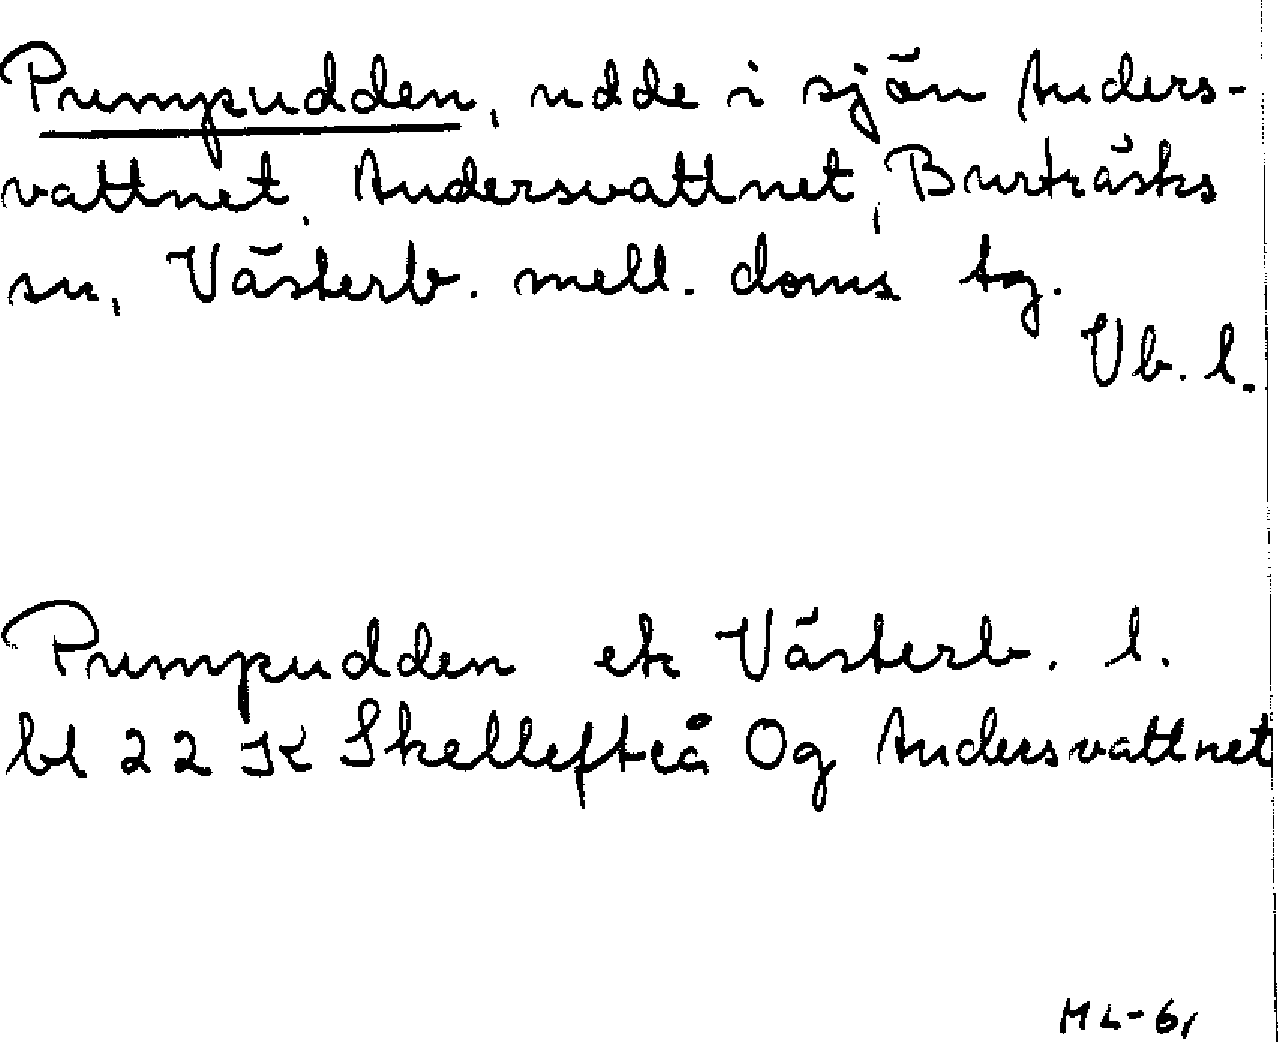 Pumpudden, udde i sjön Anders-
vattnet. Andersvattnet, Burträsks
sn, Västerb. mell. doms tg.
Vb. l.
Pumpudden ek Västerb. l.
bl 22 K Skellefteå Og Andersvattnet
ML-61